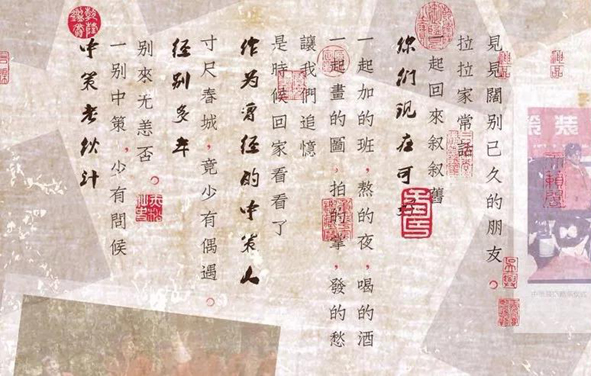 中策老伙计
一别中策，少有問候
别來无恙否。
经别多年
寸尺春城，竟少有偶遇。
作为曾经的中策人
是時候回家看看了
讓我們追憶
一起畫的圖，拍的，發的愁
一起加的班，熬的夜，喝的酒
你们现在可
起回來叙叙舊
拉拉家常話
見見闊别已久的朋友。